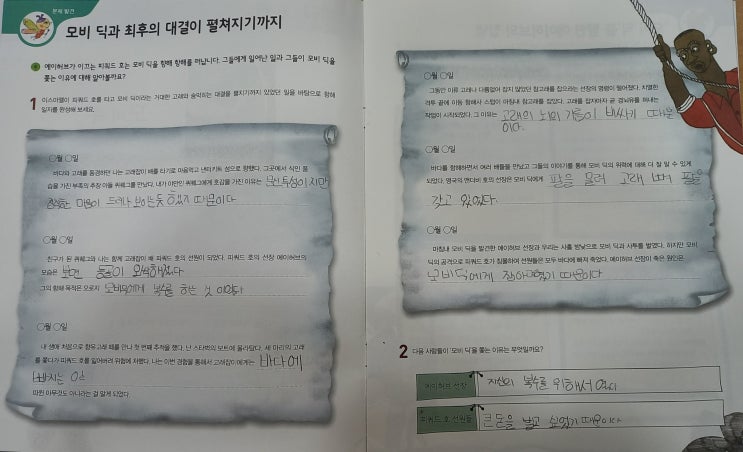 문제 발견
모비 딕과 최후의 대결이 펼쳐지기까지
에이허브가 이끄는 피쿼드 호는 모비 딕을 향해 항해를 떠납니다. 그들에게 일어난 일과 그들이 모비 딕을
쫓는 이유에 대해 알아볼까요?
1 이스마엘이 피쿼드 호를 타고 모비 딕이라는 거대한 고래와 숨막히는 대결을 펼치기까지 있었던 일을 바탕으로 항해
일지를 완성해 보세요.
○월 ○일
바다와 고래를 동경하던 나는 고래잡이 배를 타기로 마음먹고 낸터키트 섬으로 향했다. 그곳에서 식인 풍
습을 가진 부족의 추장 아들 퀴퀘그를 만났다. 내가 야만인 퀴퀘그에게 호감을 가진 이유는
마음이 드러나 보이는듯 했기 때문이다
○월 ○일
친구가 된 퀴퀘그와 나는 함께 고래잡이 배 피쿼드 호의 선원이 되었다. 피쿼드 호의 선장 에이허브의
모습은 보면 온몸이 오싹해졌다
그의 항해 목적은 오로지 모비딕에게 복수를 하는 것 이었다
○월 ○일
내 생애 처음으로 향유고래 떼를 만나 첫 번째 추격을 했다. 난 스타벅의 보트에 올라탔다. 세 마리의 고래
를 쫓다가 피쿼드 호를 잃어버려 위험에 처했다. 나는 이번 경험을 통해서 고래잡이에게는 바다에
빠지는 일
따윈 아무것도 아니라는 걸 알게 되었다.
○월 ○일
그동안 이류 고래나 다름없어 잡지 않았던 참고래를 잡으라는 선장의 명령이 떨어졌다. 치열한
격투 끝에 이등 항해사 스텁이 마침내 참고래를 잡았다. 고래를 잡자마자 곧 경뇌유를 퍼내는
작업이 시작되었다. 그 이유는 고래의 뇌의 기름이 비싸기 때문
이다.
○월 ○일
바다를 항해하면서 여러 배들을 만났고 그들의 이야기를 통해 모비 딕의 위력에 대해 더 잘 알 수 있게
되었다. 영국의 엔더비 호의 선장은 모비 딕에게 팔을 물려 고래 뼈 팔을
갖고 있었다.
○월 ○일
마침내 모비 딕을 발견한 에이허브 선장과 우리는 사흘 밤낮으로 모비 딕과 사투를 벌였다. 하지만 모비
딕의 공격으로 피쿼드 호가 침몰하여 선원들은 모두 바다에 빠져 죽었다. 에이허브 선장이 죽은 원인은
모비딕에게 잡아먹혔기 때문이다
2 다음 사람들이 '모비 딕'을 쫓는 이유는 무엇일까요?
에이허브 선장 자신의 복수를 위해서 였다
피쿼드 호 선원들 큰 돈을 벌고 싶었기 때문이다